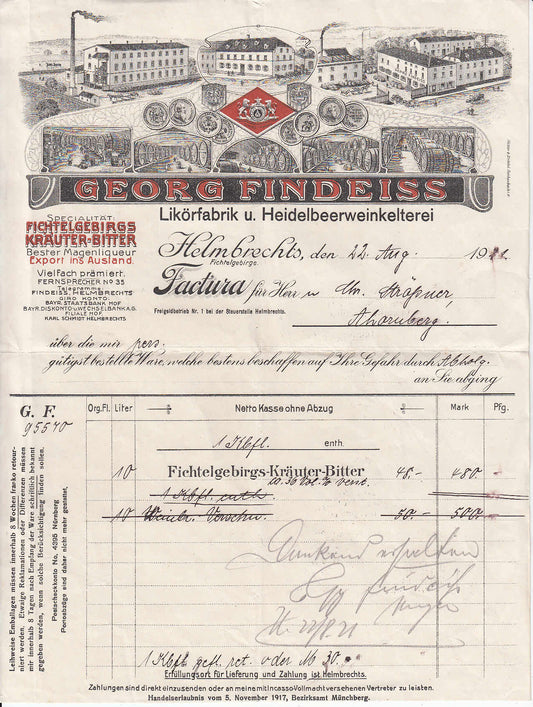 GEORG FINDEISS
Likörfabrik u. Heidelbeerweinkelterei
SPECIALITÄT:
FICHTELGEBIRGS
KRÄUTER-BITTER
Bester Magenliqueur
Export ins Ausland.
Vielfach prämiert.
FERNSPRECHER No 35
Telegramme:
FINDEISS, HELMBRECHTS
GIRO KONTO:
BAYR. STAATSBANK HOF
BAYR. DISKONTO u. WECHSELBANK A.G.
FILIALE HOF
KARL SCHMIDT HELMBRECHTS
Helmbrechts, den 22 Aug. 1921
Fichtelgebirge.
Factura für Herr n Chr. Ströhner,
Freigeldbetrieb Nr. 1 bei der Steuerstelle Helmbrechts.
Ahornberg.
über die mir pers.
gütigst bestellte Ware, welche bestens beschaffen auf Ihre Gefahr durch Abholg.
an Sie abging
G. F.
95540
Leihweise Emballagen müssen innerhalb 8 Wochen franko retour-
niert werden. Etwaige Reklamationen oder Differenzen müssen
mir innerhalb 8 Tagen nach Empfang der Ware schriftlich bekannt
gegeben werden, wenn solche Berücksichtigung finden sollen.
Postscheckkonto No. 4395 Nürnberg
Portoabzüge sind daher nicht mehr gestattet.
Org.Fl. Liter Netto Kasse ohne Abzug Mark Pfg.
1 Kbfl. enth.
10 Fichtelgebirgs-Kräuter-Bitter 48.- 480.-
38 Vol. % verst.
1 Kbfl. enth.
10 50.- 500.-
Dankend erhalten
H. 22/8.21
1 Kbfl. gefl. ret. oder M 30.-
Erfüllungsort für Lieferung und Zahlung ist Helmbrechts.
Zahlungen sind direkt einzusenden oder an meine mit Incasso Vollmacht versehenen Vertreter zu leisten.
Handelserlaubnis vom 5. November 1917, Bezirksamt Münchberg.